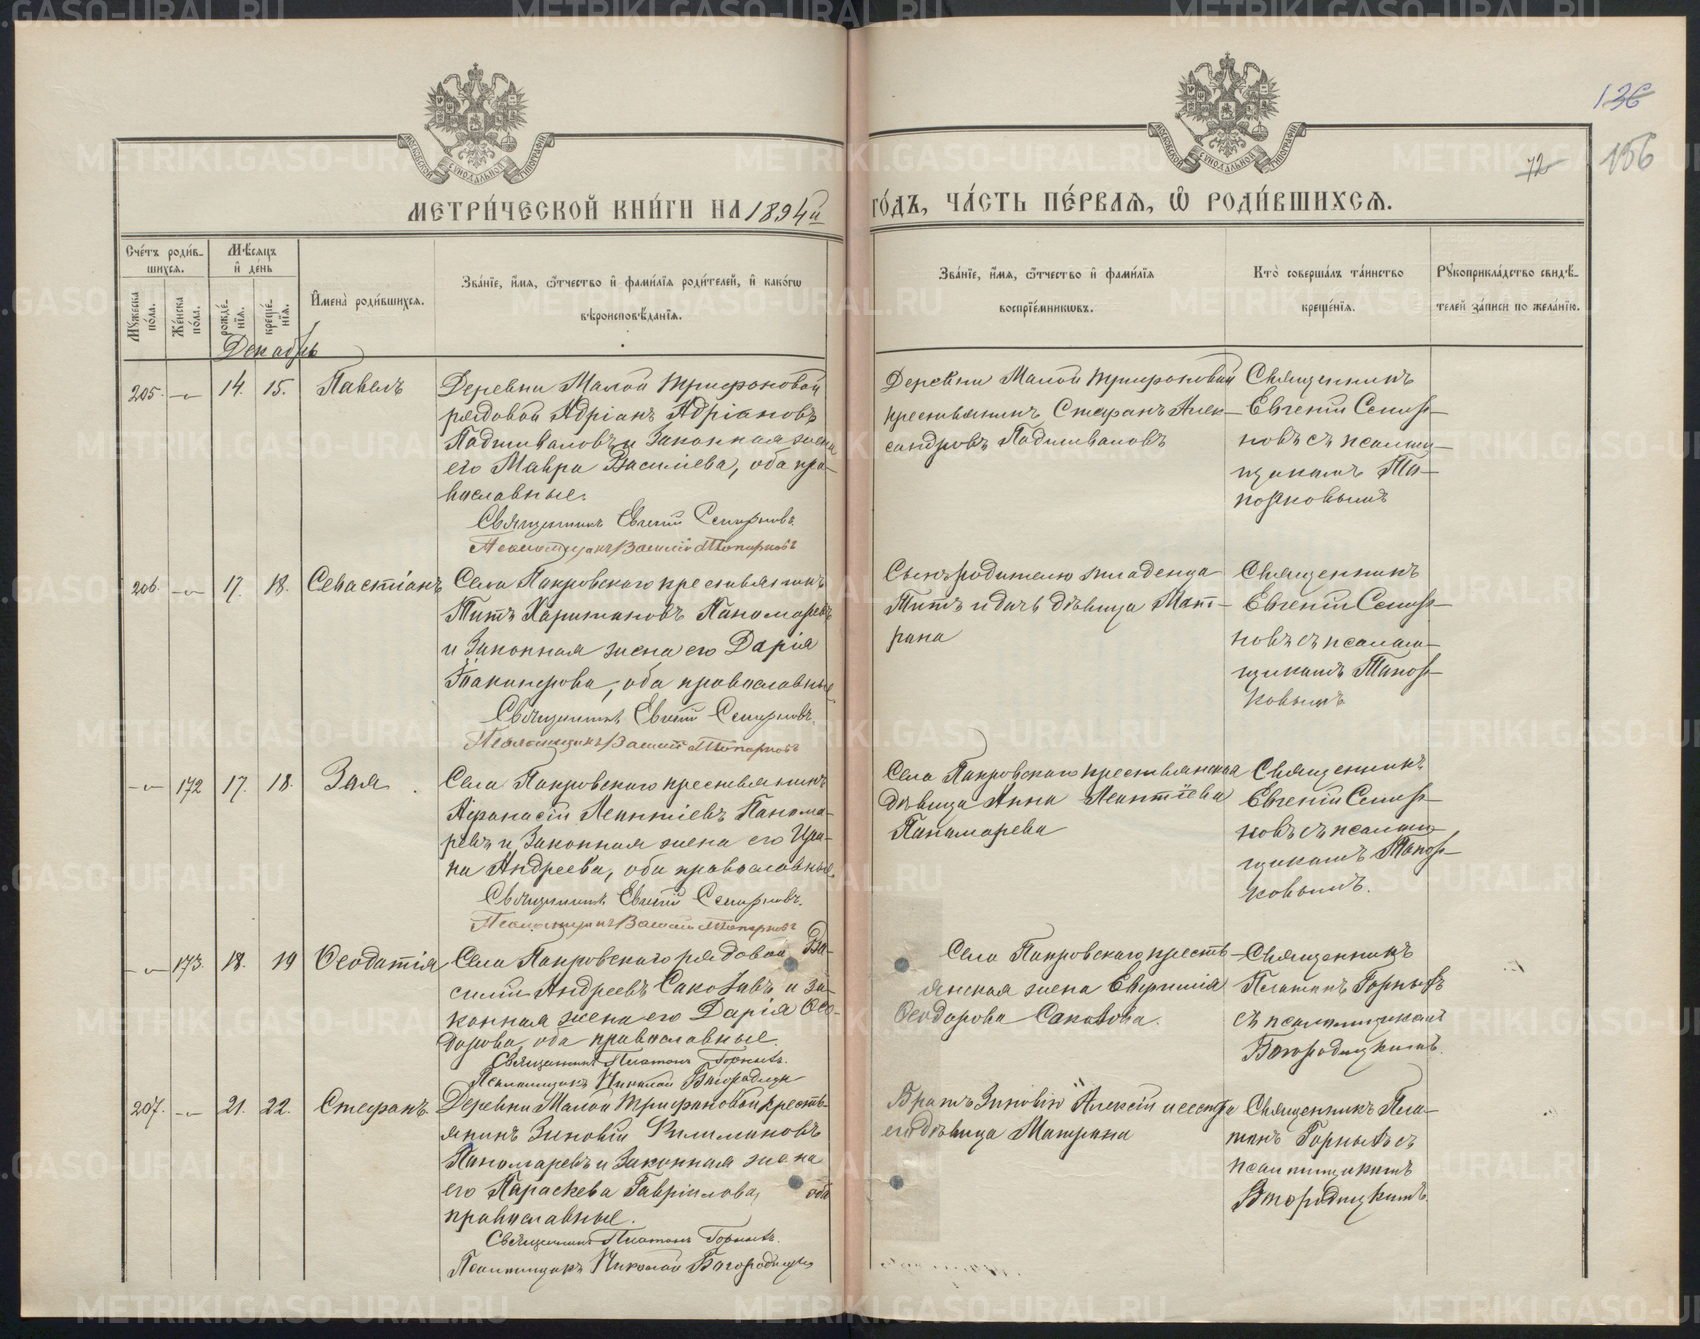 136
156
72
МЕТРИ́ЧЕСКОЙ КНИ́ГИ НА 1894й
ГО́ДЪ, ЧА́СТЬ ПЕ́РВАѦ, Ѡ҆ РОДИ́ВШИХСѦ.
Сче́тъ роди́в-
шихсѧ.
Мѣ́сѧцъ
и҆ де́нь
Мꙋ́жеска
по́ла.
Же́нска
по́ла.
рожде́-
нїѧ.
креще́-
нїѧ.
И҆мена̀ роди́вшихсѧ.
Зва́нїе, и҆́мѧ, ѻ҆́тчество и҆ фами́лїѧ роди́телей, и҆ како́гѡ
вѣроисповѣ́данїѧ.
Зва́нїе, и҆́мѧ, ѻ҆́тчество и҆ фами́лїѧ
воспрїе́мникѡвъ.
Кто̀ соверша́лъ та́инство
креще́нїѧ.
Рꙋкоприкла́дство свидѣ́-
телей за́писи по жела́нїю.
Декабрь
205. — 14. 15. Павелъ
Деревни Малой Трифоновой
рядовой Адріанъ Адріановъ
Падшиваловъ и законная жена
его Мавра Василіева, оба пра-
вославные.
Священникъ Евгеній Смирновъ
Псаломщикъ Василій Топорковъ
Деревни Малой Трифоновой
крестьянинъ Стефанъ Алек-
сандровъ Падшиваловъ
Священникъ
Евгеній Смир-
новъ съ псалом-
щикомъ То-
порковымъ
206. — 17. 18. Севастіанъ
Села Покровскаго крестьянинъ
Титъ Харитановъ Пономаревъ
и законная жена его Дарія
оба православные
Священникъ Евгеній Смирновъ.
Псаломщикъ Василій Топорковъ
Сынъ родителю младенца
Титъ и дочь дѣвица Мат-
рона
Священникъ
Евгеній Смир-
новъ съ псалом-
щикомъ Топор-
ковымъ
— 172 17. 18. Зоя
Села Покровскаго крестьянинъ
Афанасій Леантіевъ Панома-
ревъ и законная жена его Ири-
на Андреева, оба православные.
Священникъ Евгеній Смирновъ.
Псаломщикъ Василій Топорковъ
Села Покровскаго крестьянская
дѣвица Анна Леантіева
Панамарева
Священникъ
Евгеній Смир-
новъ съ псалом-
щикомъ Топор-
ковымъ.
— 173. 18. 19 Ѳеодотія
Села Покровскаго рядовой Ва-
силій Андреевъ Саковъ и за-
конная жена его Дарія Ѳео-
дорова, оба православные.
Священникъ Платонъ Горныхъ.
Псаломщикъ Николай Богородицкій
Села Покровскаго кресть-
янская жена Евфимія
Ѳеодорова Сакова.
Священникъ
Платонъ Горныхъ
съ псаломщикомъ
Богородицкимъ.
207. — 21. 22. Стефанъ
Деревни Малой Трифоновой кресть-
янинъ Зиновій Филимоновъ
Пономаревъ и законная жена
его Параскева Гавріилова, оба
православные.
Священникъ Платонъ Горныхъ.
Псаломщикъ Николай Богородицкій
Братъ Зиновію Алексій и сестра
его дѣвица Матрона
Священникъ Пла-
тонъ Горныхъ съ
псаломщикомъ
Богородицкимъ.